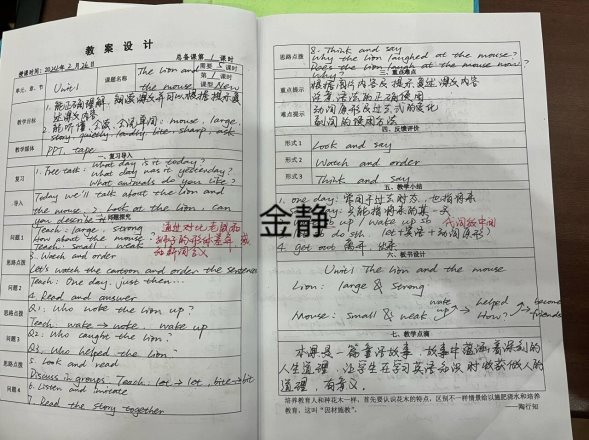 教 案 设 计
总备课第 1 课时
授课时间: 2024年2月26日
需要 5 课时
单元、章、节
Unit1
课题名称
The lion and
the mouse
第 1 课时
课型 New
教学目标
1. 能正确理解、朗读课文并可以根据提示复
述课文内容
2. 能听懂、会读、会说单词: mouse, large,
strong, quietly, loudly, bite, sharp, ask
教学媒体
PPT, tape
一、复习导入
复习
1. Free talk: What day is it today?
What day was it yesterday?
What animals do you like?
导入
Today we'll talk about the lion and
the mouse, > Look at the lion, can
you describe it?
二、问题探究
问题 1
Teach: large, strong
How about the mouse?
Teach: small, weak
通过对比老鼠和
狮子的形体差异,
思路点拨
3. Watch and order
Let's watch the cartoon and order the sentences
问题 2
Teach: One day, just then...
4. Read and answer
思路点拨
Q1: Who woke the lion up?
Teach: wake → woke, wake up
问题 3
Q2: Who caught the lion?
Q3: Who helped the lion?
思路点拨
5. Look and read
Discuss in groups. Teach: let → let, bite → bit
问题 4
6. Listen and imitate
7. Read the story together
思路点拨
8. Think and say
Why the lion laughed at the mouse?
Does the lion laugh at the mouse now?
Why?
三、重点难点
重点提示
根据图片内容及提示复述课文内容
注意语法的正确使用
难点提示
动词原形及过去式的变化
副词的使用方法
四、反馈评价
形式 1
Look and say
形式 2
Watch and order
形式 3
Think and say
五、教学小结
1. one day: 常用于过去时态, 也指将来
只能指将来的某一天
wake up / wake sb up
代词放中间
do sth (let+宾语+动词原形)
4. get out 离开, 出来
六、板书设计
Unit1 The lion and the mouse
Lion: large & strong
Mouse: small & weak
wake
up
helped
How?
become
friends
七、教学点滴
本课是一篇童话故事, 故事中蕴涵着深刻的
人生道理, 让学生在学习英语知识时做做人的
道理, 有意义.
培养教育人和种花木一样, 首先要认识花木的特点, 区别不一样情景给以施肥浇水和培养
教育, 这叫“因材施教”。
——陶行知
金静